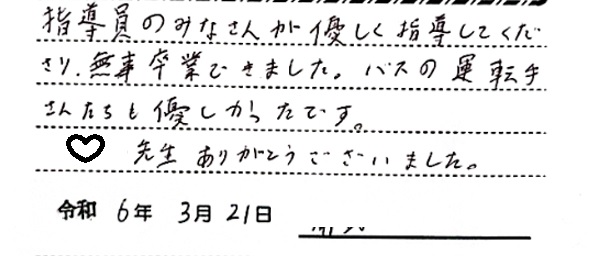 指導員のみなさんが優しく指導してくだ
さり、無事卒業できました。バスの運転手
さんたちも優しかったです。
♡ 先生ありがとうございました。
令和 6年 3月 21日